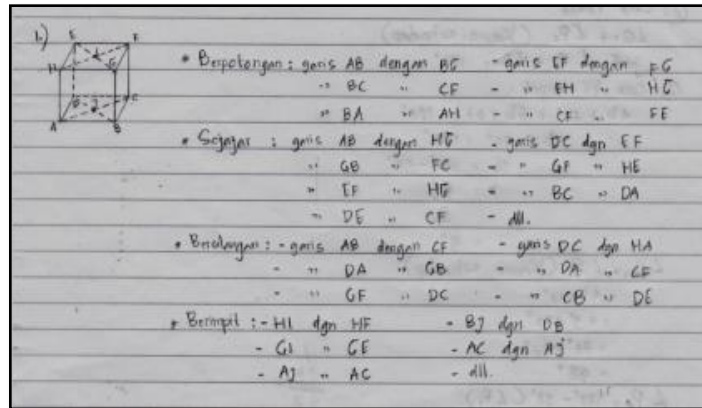 1.)
E F
H I G
D J C
A B
* Berpotongan : garis AB dengan BG - garis EF dengan FG
" BC " CF - " EH " HG
" BA " AH - " CF " FE
* Sejajar : garis AB dengan HG - garis DC dgn EF
" GB " FC - " GF " HE
" EF " HG - " BC " DA
" DE " CF - dll.
* Bersilangan : - garis AB dengan CF - garis DC dgn HA
- " DA " GB - " DA " CF
- " GF " DC - " CB " DE
* Berimpit : - HI dgn HF - BJ dgn DB
- GI " GE - AC dgn AJ
- AJ " AC - dll.